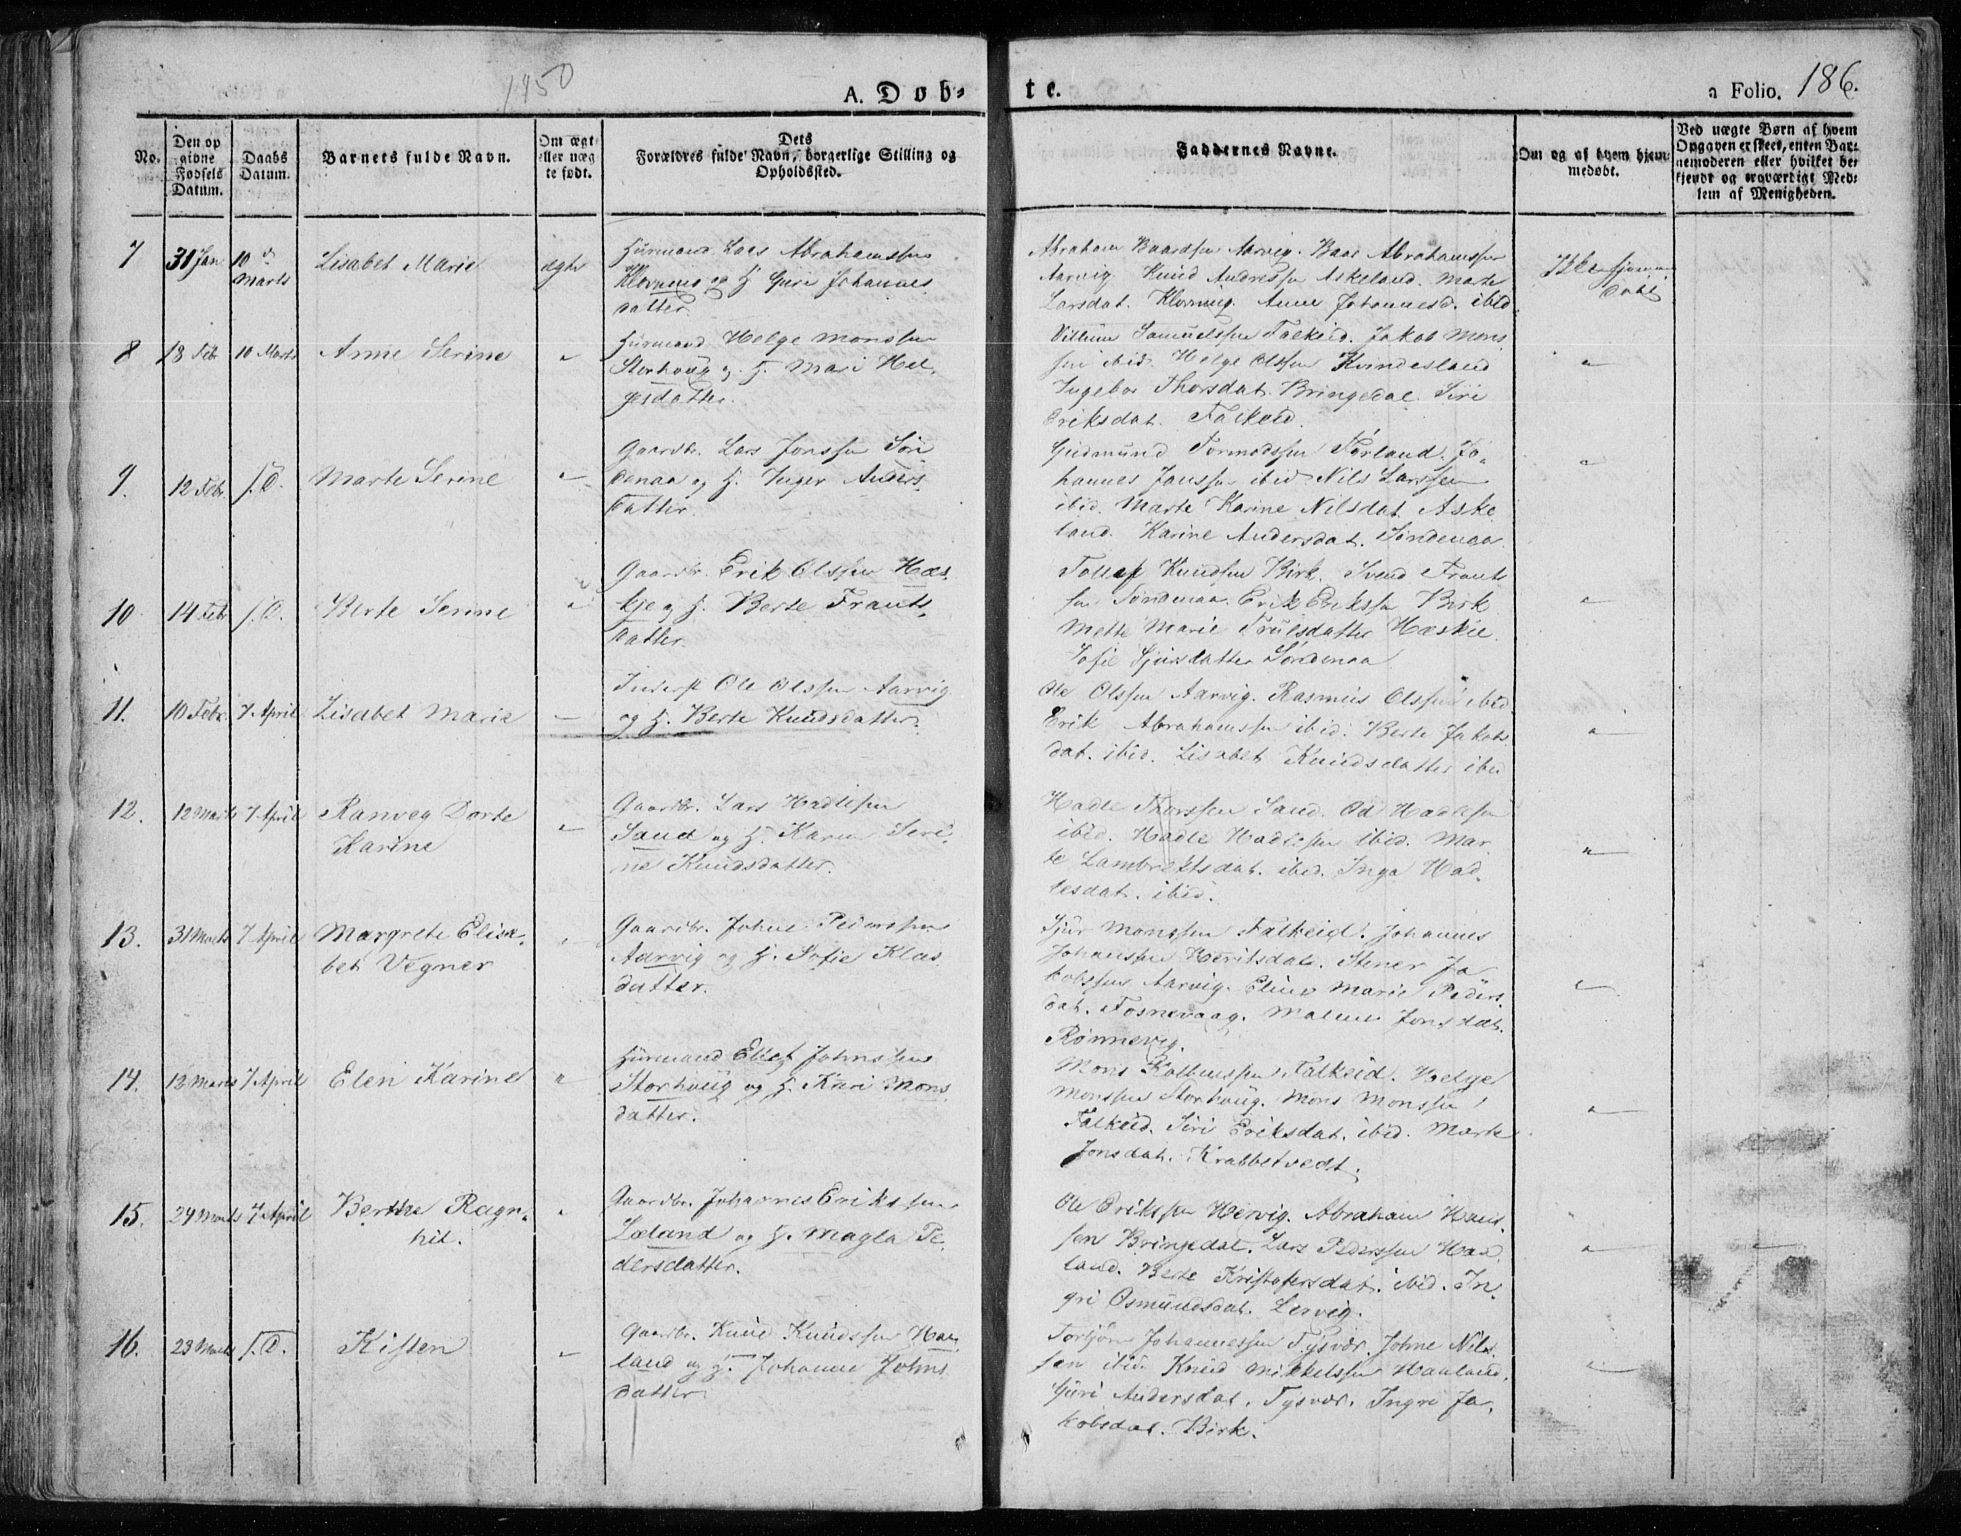 1850
A. Døb-
te.
a Folio. 186.
No.
Den op
givne
Fødsels
Datum.
Daabs
Datum.
Barnets fulde Navn.
Om ægt
eller uæg
te født.
Dets
Forældres fulde Navn, borgerlige Stilling og
Opholdssted.
Faddernes Navne.
Om og af hvem hjem-
medøbt.
Ved uægte Børn af hvem
Opgaven er skeet, enten Bar-
nemoderen eller hvilket be-
kjendt og troværdigt Med-
lem af Menigheden.
7
31 Jan
10 d
Marts
Lisabet Marie
ægte
Huusmand Lars Abrahamssen
Klovning og H. Guri Johannes
datter
Abraham Baardsen Aarvig. Baar Abrahamssen
Aarvig. Knud Andresen Askeland. Marte
Larsdat. Klovning. Anne Johannesd. ibid
Ikke hjemme
døbt
8
18 Febr
10 Marts
Anne Serine
"
Huusmand Helge Monssen
Storhoug og H. Mari Hel-
gesdatter.
Villum Samuelssen Falkeid. Jakob Mons
sen ibid. Helge Olssen Kvindesland
Ingebor Thorsdat. Bringedal. Siri
Eriksdat. Falkeid.
"
9.
12 Febr
s. D.
Marte Serine
"
Gaardbr. Lars Jonssen Søn
denaa og H. Inger Anders
datter.
Gudmund Tormodssen Førland. Jo-
hannes Janssen ibid Nils Larssen
ibid. Marte Karine Nilsdat. Aske
land. Karine Andersdat. Søndenaa
"
10
14 Febr
s. D.
Berte Serine
"
Gaardbr. Erik Olssen Hæs
kje og H. Berte Frants
datter.
Tollef Knudsen Birk. Svend Frants
sen Søndenaa. Erik Erikssen Birk
Mette Marie Trulsdatter Hæskie.
Sofie Sjursdatter Søndenaa
"
11.
10 Febr.
7 April
Lisabet Marie
"
Inderst Ole Olssen Aarvig
og H. Berte Knudsdatter.
Ole Olssen Aarvig. Rasmus Olssen ibid
Erik Abrahamssen ibid. Berte Jakobs
dat. ibid. Lisabet Knudsdatter ibid
"
12.
12 Marts
7 April
Ranveg Dorte
Karine
"
Gaardbr. Lars Hadlesen
Sand og H. Karen Seri-
ne Knudsdatter.
Hadle Thorssen Sand. Od Hadlesen
ibid. Hadle Hadlesen ibid. Mar
te Lambrektsdat. ibid. Inga Had
lesdat. ibid.
"
13.
31 Marts
7 April
Margrete Elisa-
bet Vegner
"
Gaardbr. Johne Pederssen
Aarvig og H. Sofie Klas
datter.
Sjur Monssen Falkeid. Johannes
Johanssen Stener Ja
kobssen Aarvig. Eline Marie Peders
dat. Fosnevaag. Malene Jonsdat.
Rønnevig.
"
14.
12 Marts
7 April
Elen Karine
"
Huusmand Ellef Johnssen
Storhoug og H. Kari Mons
datter.
Mons Kolbenssen Falkeid. Helge
Monssen Storhoug. Mons Monssen
Falkeid. Siri Eriksdat. ibid. Marte
Jonsdat. Krabbetvedt.
"
15.
24 Marts
7 April
Berthe Ragn-
hil.
"
Gaardbr. Johannes Erikssen
Leeland og H. Magla Pe
dersdatter.
Ole Erikssen Hervig. Abraham Hans
sen Bringedal. Lars Pederssen Haa
land. Berte Kristofersdat. ibid. In-
gri Osmundsdat. Lervig.
"
16.
23 Marts
s. D.
Kisten
"
Gaardbr. Knud Knudssen Haa
land og H. Johanne Johns
datter.
Torbjørn Johannessen Tysvær. Johne Nils
sen ibid Knud Mikkelssen Haaland.
Guri Andersdat. Tysvær. Ingri Ja-
kobsdat. Birk.
"